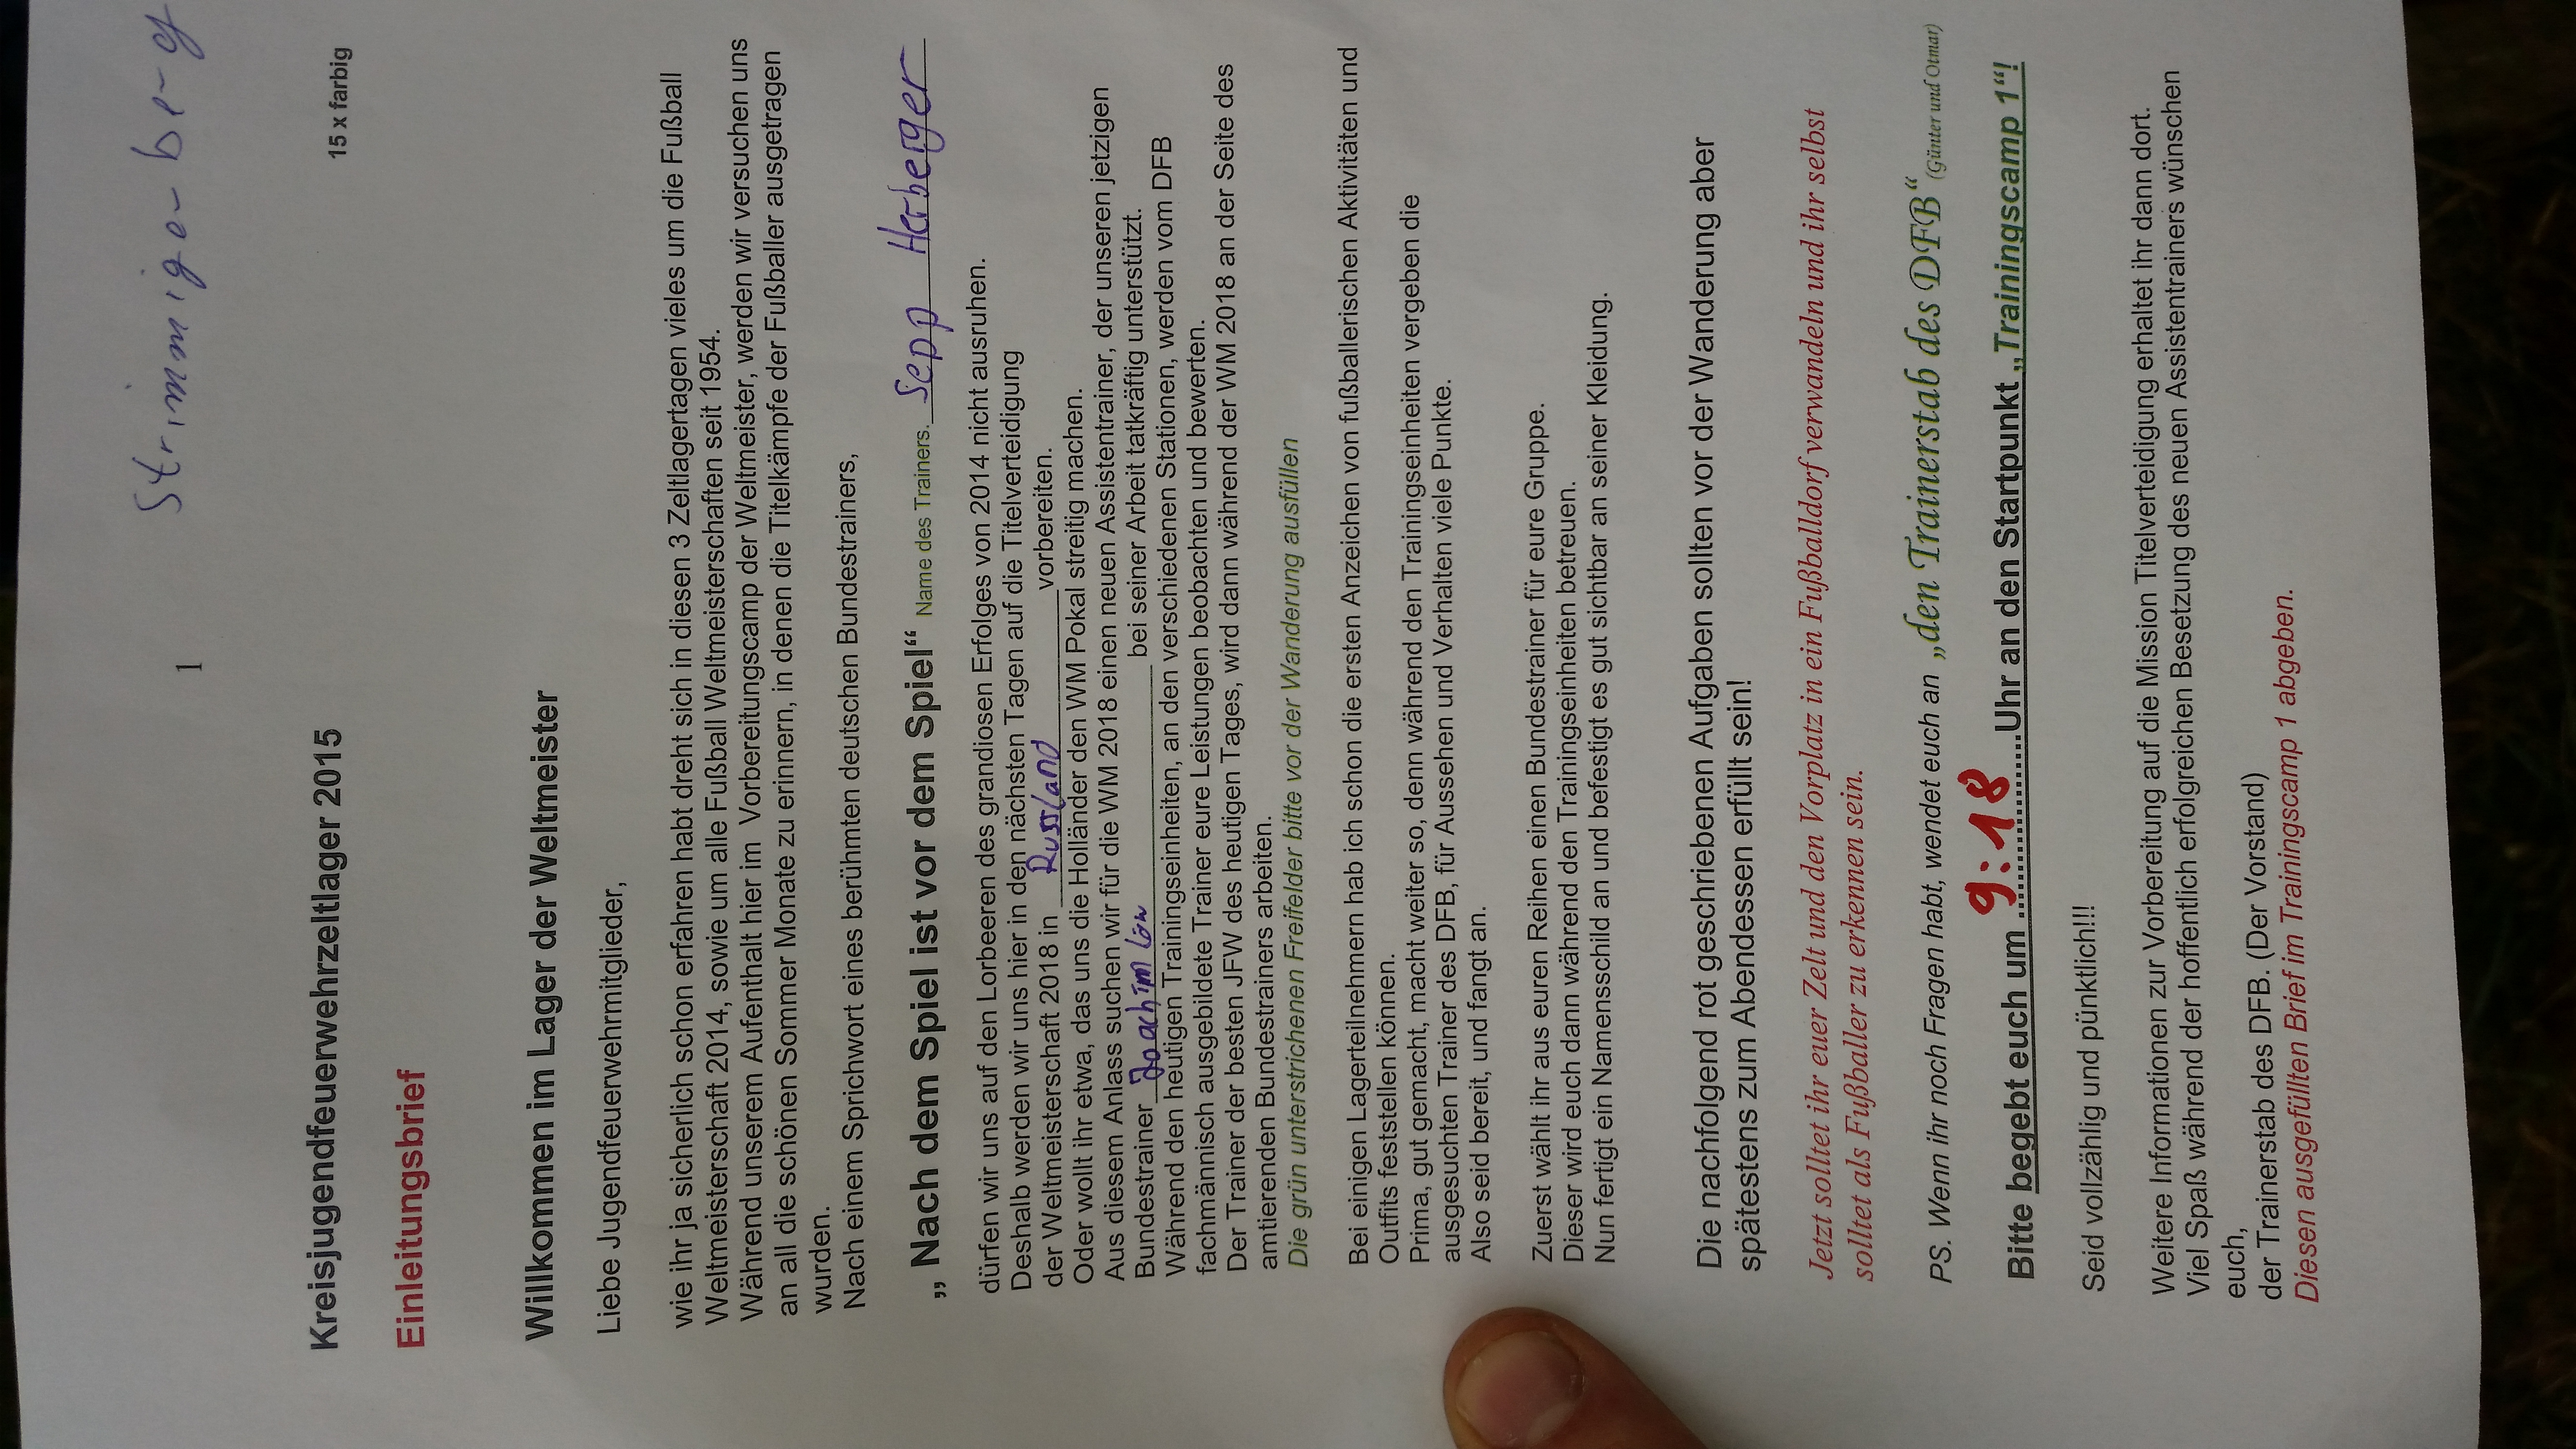 1 Strimmiger-berg
15 x farbig
Kreisjugendfeuerwehrzeltlager 2015
Einleitungsbrief
Willkommen im Lager der Weltmeister
Liebe Jugendfeuerwehrmitglieder,
wie ihr ja sicherlich schon erfahren habt dreht sich in diesen 3 Zeltlagertagen vieles um die Fußball
Weltmeisterschaft 2014, sowie um alle Fußball Weltmeisterschaften seit 1954.
Während unserem Aufenthalt hier im Vorbereitungscamp der Weltmeister, werden wir versuchen uns
an all die schönen Sommer Monate zu erinnern, in denen die Titelkämpfe der Fußballer ausgetragen
wurden.
Nach einem Sprichwort eines berühmten deutschen Bundestrainers,
„ Nach dem Spiel ist vor dem Spiel“ Name des Trainers. Sepp Herberger
dürfen wir uns auf den Lorbeeren des grandiosen Erfolges von 2014 nicht ausruhen.
Deshalb werden wir uns hier in den nächsten Tagen auf die Titelverteidigung
der Weltmeisterschaft 2018 in Russland vorbereiten.
Oder wollt ihr etwa, das uns die Holländer den WM Pokal streitig machen.
Aus diesem Anlass suchen wir für die WM 2018 einen neuen Assistentrainer, der unseren jetzigen
Bundestrainer Joachim Löw bei seiner Arbeit tatkräftig unterstützt.
Während den heutigen Trainingseinheiten, an den verschiedenen Stationen, werden vom DFB
fachmännisch ausgebildete Trainer eure Leistungen beobachten und bewerten.
Der Trainer der besten JFW des heutigen Tages, wird dann während der WM 2018 an der Seite des
amtierenden Bundestrainers arbeiten.
Die grün unterstrichenen Freifelder bitte vor der Wanderung ausfüllen
Bei einigen Lagerteilnehmern hab ich schon die ersten Anzeichen von fußballerischen Aktivitäten und
Outfits feststellen können.
Prima, gut gemacht, macht weiter so, denn während den Trainingseinheiten vergeben die
ausgesuchten Trainer des DFB, für Aussehen und Verhalten viele Punkte.
Also seid bereit, und fangt an.
Zuerst wählt ihr aus euren Reihen einen Bundestrainer für eure Gruppe.
Dieser wird euch dann während den Trainingseinheiten betreuen.
Nun fertigt ein Namensschild an und befestigt es gut sichtbar an seiner Kleidung.
Die nachfolgend rot geschriebenen Aufgaben sollten vor der Wanderung aber
spätestens zum Abendessen erfüllt sein!
Jetzt solltet ihr euer Zelt und den Vorplatz in ein Fußballdorf verwandeln und ihr selbst
solltet als Fußballer zu erkennen sein.
PS. Wenn ihr noch Fragen habt, wendet euch an „den Trainerstab des DFB“ (Günter und Otmar)
Bitte begebt euch um 9:18 Uhr an den Startpunkt „Trainingscamp 1“!
Seid vollzählig und pünktlich!!!
Weitere Informationen zur Vorbereitung auf die Mission Titelverteidigung erhaltet ihr dann dort.
Viel Spaß während der hoffentlich erfolgreichen Besetzung des neuen Assistentrainers wünschen
euch,
der Trainerstab des DFB. (Der Vorstand)
Diesen ausgefüllten Brief im Trainingscamp 1 abgeben.